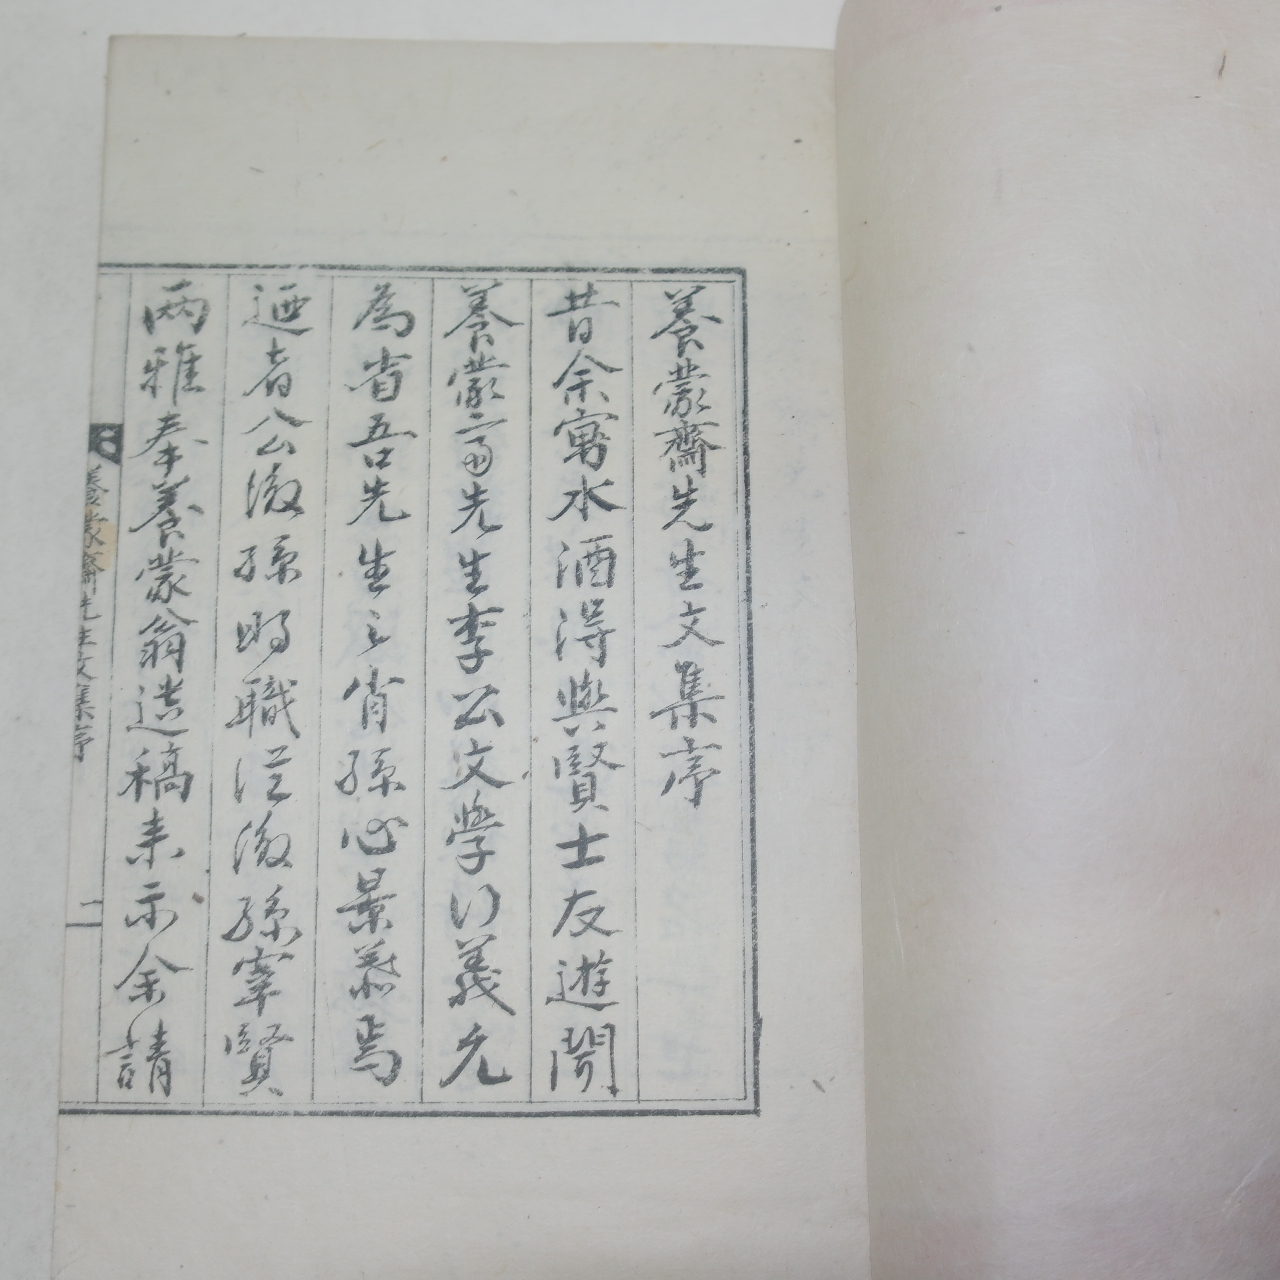 養蒙齋先生文集序
昔余寓水酒得與賢士友遊聞
養蒙齋先生李公文學行義允
為省吾先生之肖孫心景慕焉
迺者公後孫明職從後孫宰賢
兩雅奉養蒙翁遺稿來示余請
養蒙齋先生文集序
二